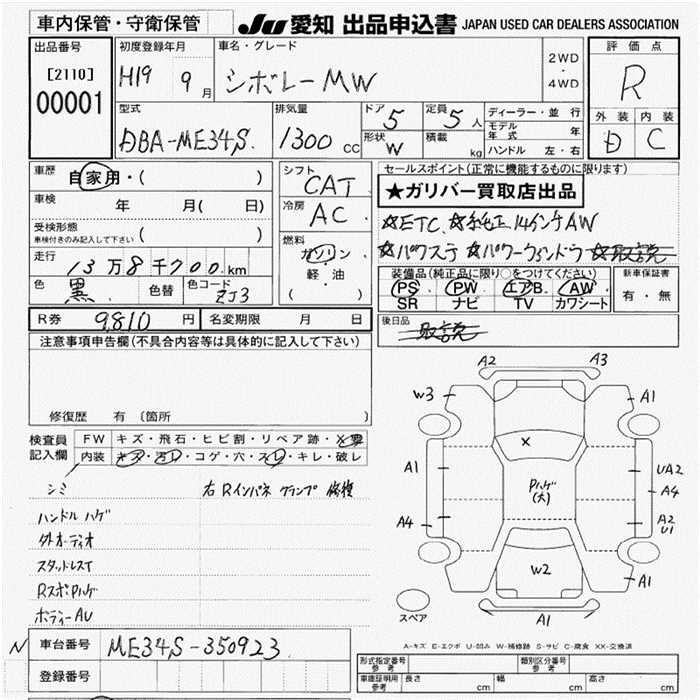 車内保管・守衛保管
JU 愛知 出品申込書 JAPAN USED CAR DEALERS ASSOCIATION
出品番号
[2110]
00001
初度登録年月
H19 9月
車名・グレード
シボレーMW
2WD
・
4WD
評価点
R
外装 内装
D C
型式
DBA-ME34S.
排気量
1300 CC
ドア 5
形状 W
定員 5 人
積載 kg
ディーラー・並 行
モデル年式 年
ハンドル 左・右
車歴
自家用・( )
車検
年 月( 日)
受検形態
車検付きのみ記入して下さい ( )
走行
13万8千700km
色 黒 色替 色コード ZJ3
シフト
CAT
冷房
AC
燃料
ガソリン
・
軽・油
( )
セールスポイント(正常に機能するものに限ります)
★ガリバー買取店出品
☆ETC. ☆純正14インチAW
☆パワステ ☆パワーウィンドウ ☆取説
装備品(純正品に限り○をつけてください)
PS・PW・エアB.・AW
SR ナビ TV カワシート
新車保証書
有・無
R券 9,810 円 名変期限 月 日
後日品
取説
注意事項申告欄(不具合内容等は具体的に記入して下さい)
修復歴 有 〔箇所
検査員
記入欄
FW キズ・飛石・ヒビ割・リペア跡・X要
内装 キズ・汚レ・コゲ・穴・スレ・キレ・破レ
シミ
右Rインパネ クランプ 修複
ハンドル ハゲ
外オーディオ
スタッドレスT
RスポPハゲ
ボディーAU
N 車台番号 ME34S-350923
登録番号
A2 A3
W3 A1
X
A1 UA2
Pハゲ
(大)
A4
A4 A2
U1
W2
A1
A1
スペア
A-キズ E-エクボ U-凹み W-補修跡 S-サビ C-腐食 XX-交換済
形式指定番号
参考
類別区分番号
参考
車庫証明用
参考
長さ cm 幅 cm 高さ cm